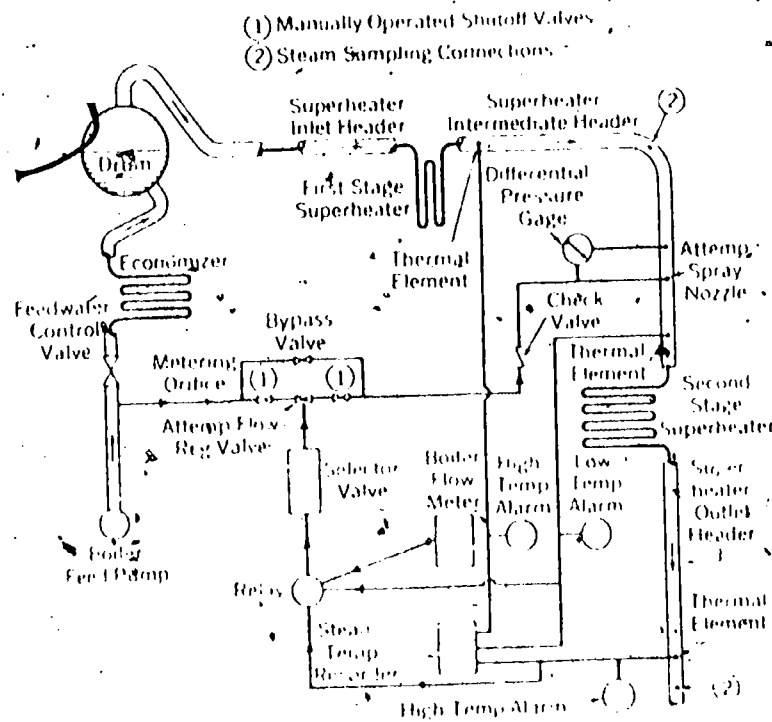 (1) Manually Operated Shutoff Valves
(2) Steam Sampling Connections
Superheater
Inlet Header
Superheater
Intermediate Header
(2)
Drum
First Stage
Superheater
Differential
Pressure
Gage
Thermal
Element
Attemp
Spray
Nozzle
Economizer
Feedwater
Control
Valve
Bypass
Valve
Check
Valve
Metering
Orifice
(1)
(1)
Thermal
Element
Attemp Flow
Reg Valve
Second
Stage
Superheater
Selector
Valve
Boiler
Flow
Meter
High
Temp
Alarm
Low
Temp
Alarm
Super
heater
Outlet
Header
Boiler
Feed Pump
Relay
Steam
Temp
Recorder
Thermal
Element
High Temp Alarm
(2)